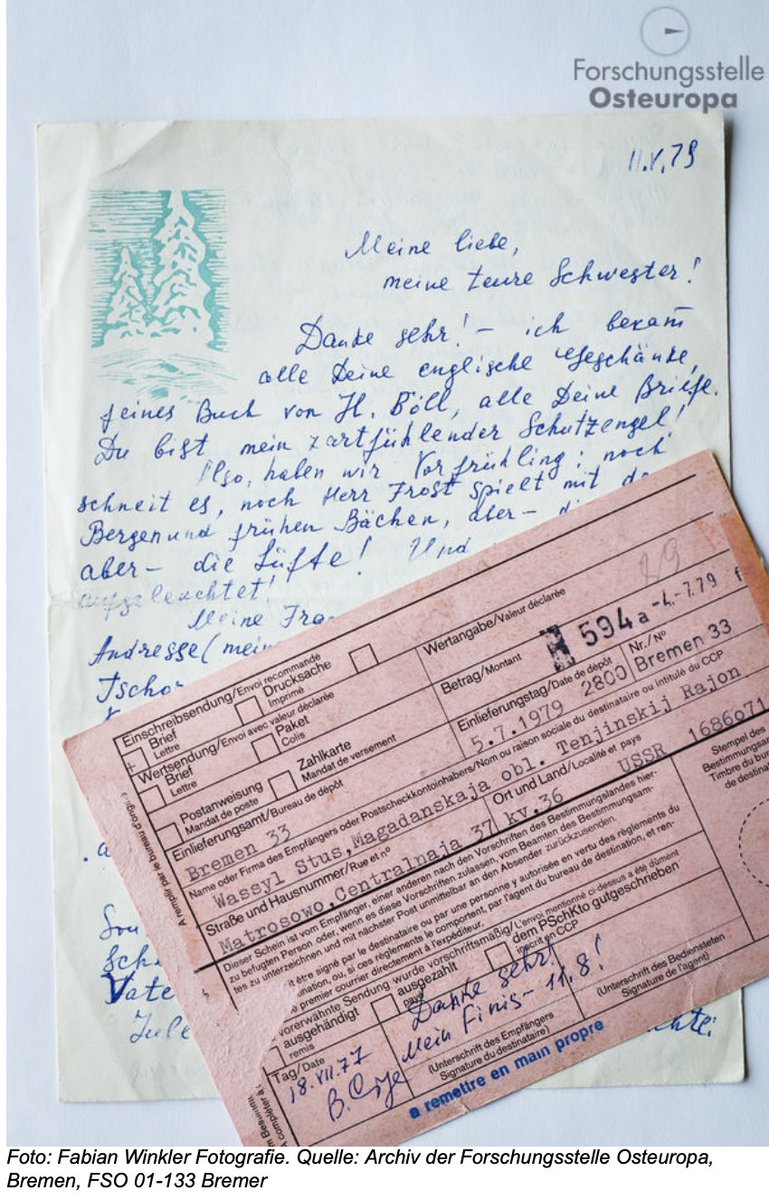 Forschungsstelle
Osteuropa
11.V.79
Meine liebe,
meine teure Schwester!
Danke sehr! – ich bekam
alle Deine englische Geschänke,
feines Buch von H. Böll, alle Deine Briefe.
Du bist mein zartfühlender Schutzengel!
Also, haben wir Vorfrühling: noch
schneit es, noch Herr Frost spielt mit de
Bergen und frühen Bächen, aber – di
aber – die Lüfte! Und
aufgeleuchtet!
Meine Fra
Andresse (mein
Tschor
Sou
Sch
Vate
Jule
Einschreibsendung/Envoi recommandé
Brief
Lettre
Drucksache
Imprimé
Wertsendung/Envoi avec valeur déclarée
Brief
Lettre
Paket
Colis
Wertangabe/Valeur déclarée
Postanweisung
Mandat de poste
Zahlkarte
Mandat de versement
Betrag/Montant
594a -4.-7.79 f
Einlieferungsamt/Bureau de dépôt
Bremen 33
Einlieferungstag/Date de dépôt
5.7.1979
Nr./N°
2800 Bremen 33
Name oder Firma des Empfängers oder Postscheckkontoinhabers/Nom ou raison sociale du destinataire ou intitulé du CCP
Wassyl Stus,Magadanskaja obl. Tenjinskij Rajon
Straße und Hausnummer/Rue et n°
Ort und Land/Localité et pays
Matrosowo,Centralnaja 37 kv.36 USSR 1686071
Dieser Schein ist vom Empfänger, einer anderen nach den Vorschriften des Bestimmungslandes hier-
zu befugten Person oder, wenn es diese Vorschriften zulassen, vom Beamten des Bestimmungsam-
tes zu unterzeichnen und mit nächster Post unmittelbar an den Absender zurückzusenden.
it être signé par le destinataire ou par une personne y autorisée en vertu des règlements du
ination, ou, si ces règlements le comportent, par l'agent du bureau de destination, et ren-
premier courrier directement à l'expéditeur.
Stempel des
Bestimmungsa
Timbre du bur
de destina
vorerwähnte Sendung wurde vorschriftsmäßig/L'envoi mentionné ci-dessus a été dûment
ausgehändigt
remis
ausgezahlt
payé
dem PSchKto gutgeschrieben
inscrit en CCP
Danke sehr!
Mein Finis – 11.8!
Tag/Date
18.VII.77
(Unterschrift des Empfängers
Signature du destinataire)
(Unterschrift des Bediensteten
Signature de l'agent)
a remettre en main propre
A remplir par le bureau d'orig
A compléter à
Foto: Fabian Winkler Fotografie. Quelle: Archiv der Forschungsstelle Osteuropa,
Bremen, FSO 01-133 Bremer